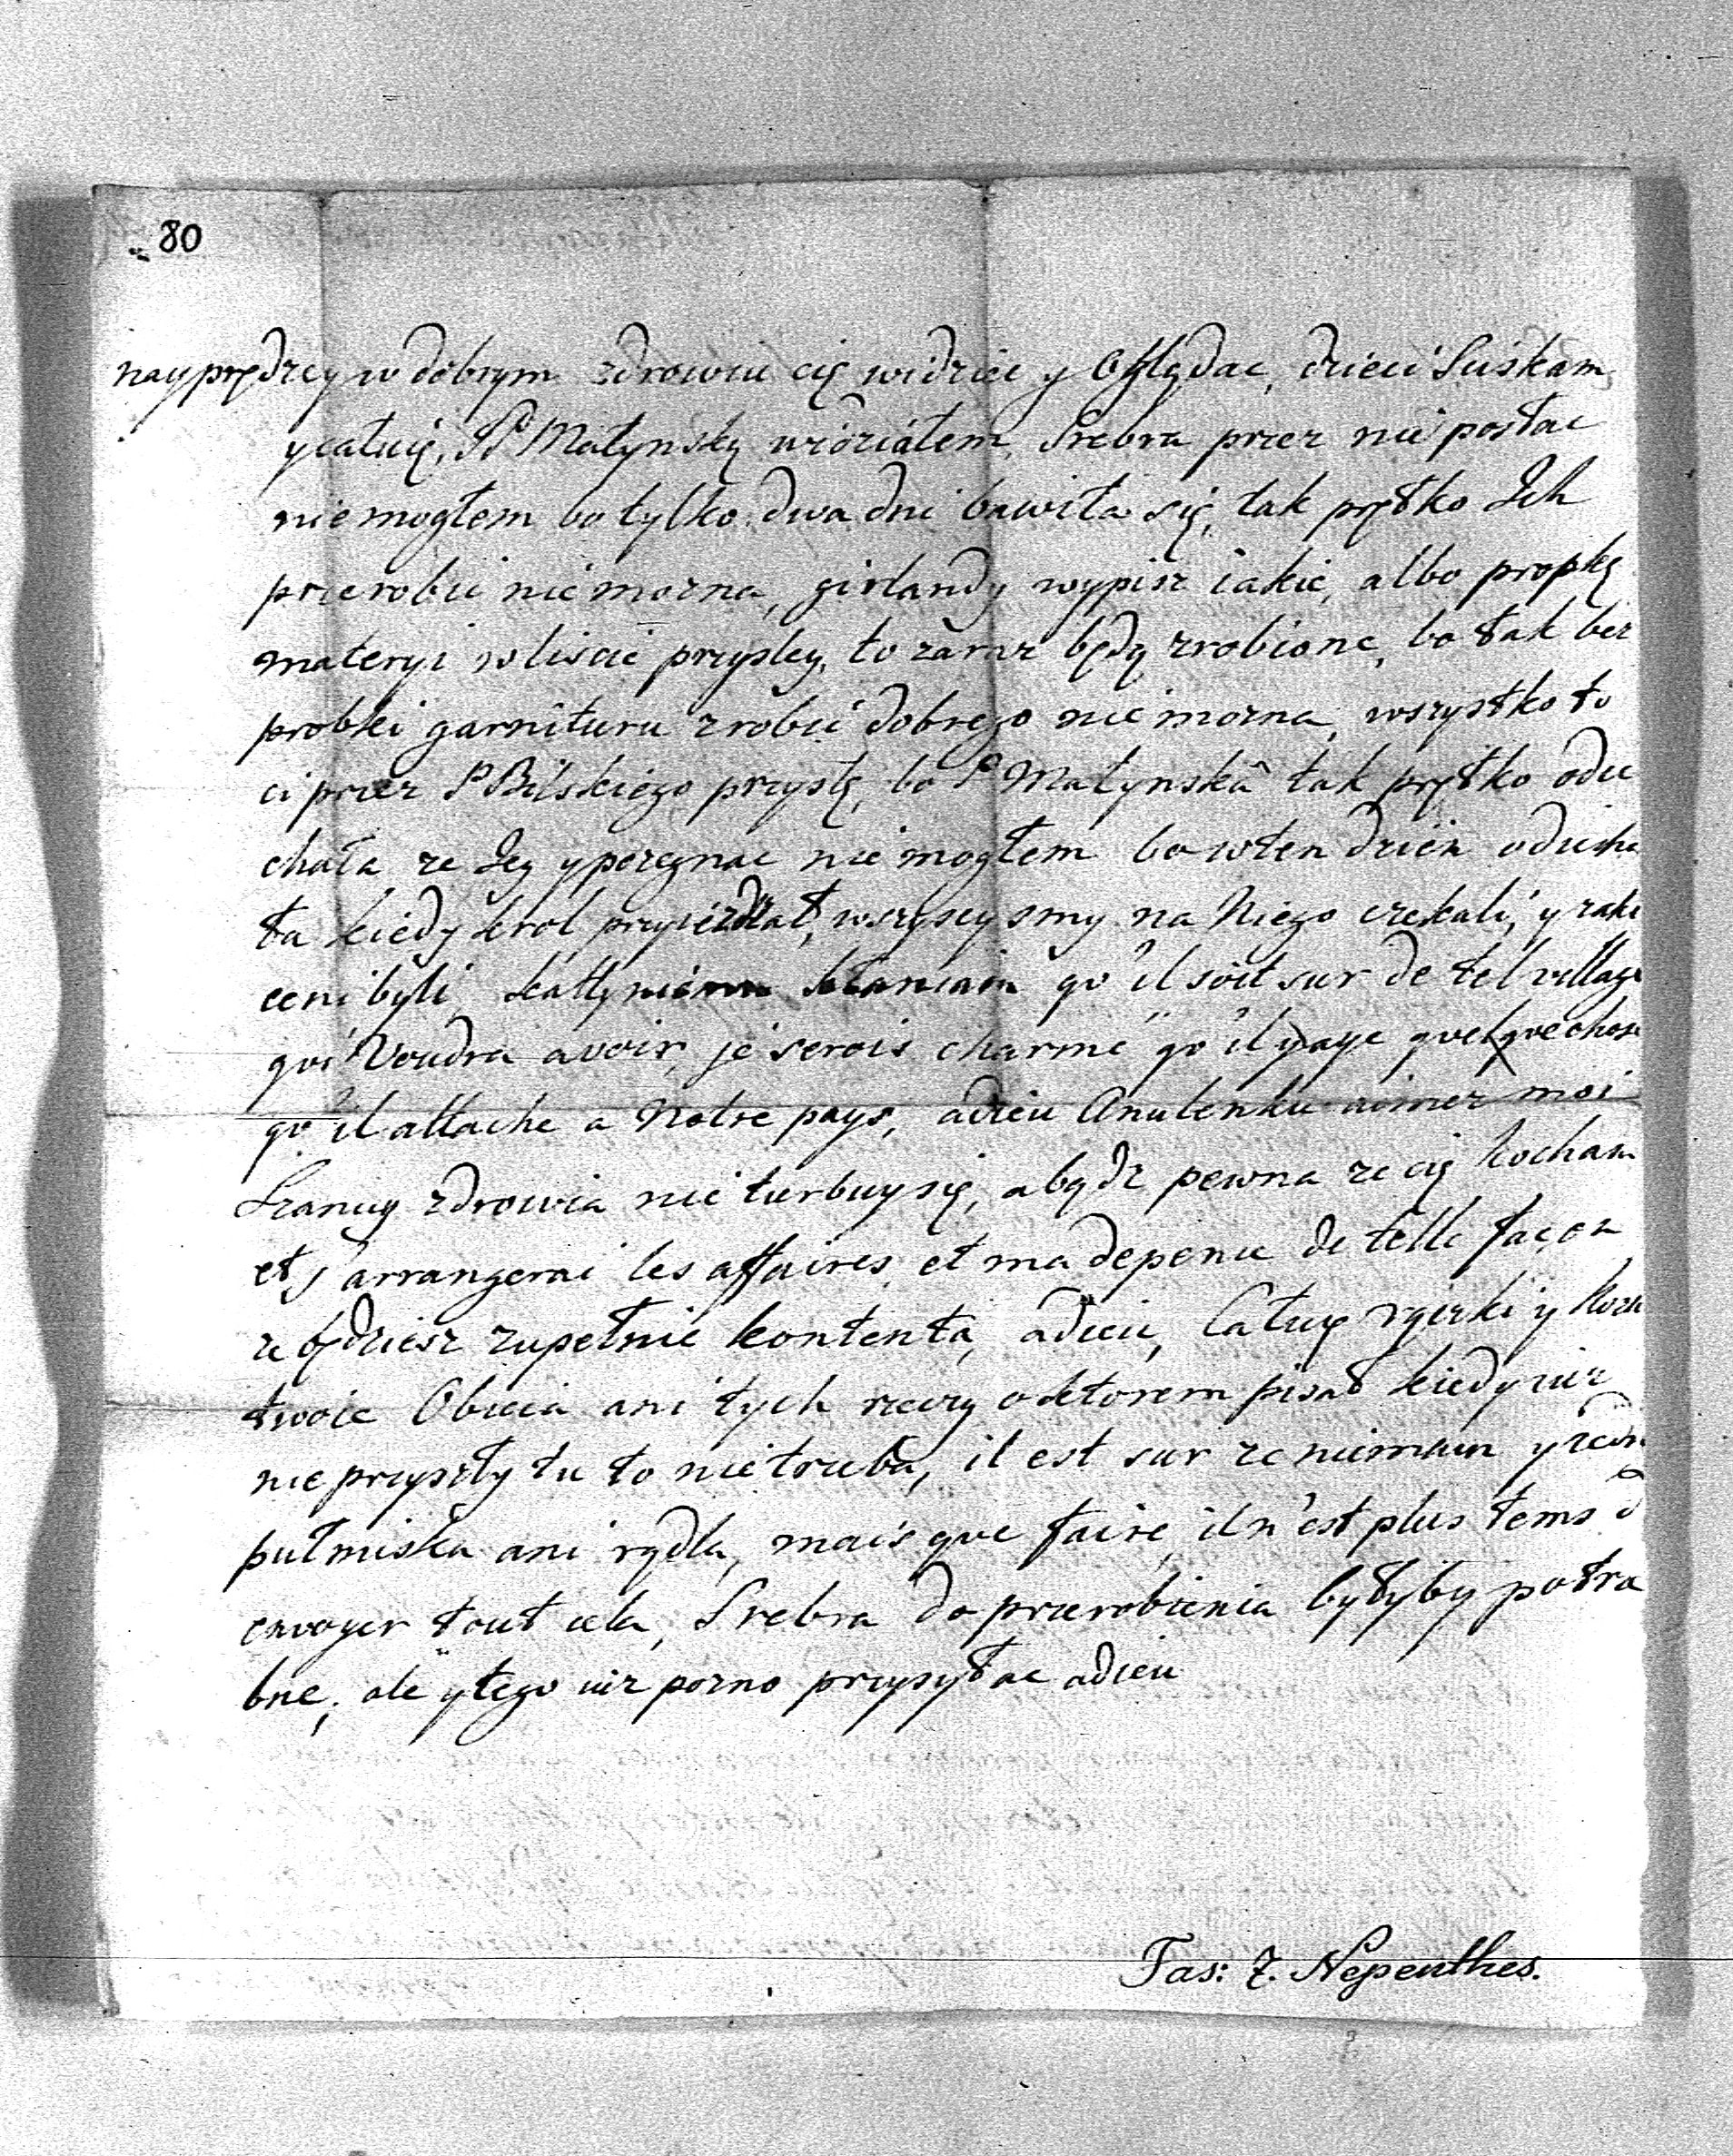 80
nayprędzey w dobrym zdrowiu cię widziec y Oglądac, dzieci Sciskam
ycałuię, P Małynską widziałem, Srebra przez nię posłac
niemogłem bo tylko dwa dni bawiła się, tak prętko Ich
przerobic niemozna, girlandy wypisz iakie, albo propkę
materyi wliscie przysley, to zaraz będą zrobione, bo tak bez
probki garnituru zrobic dobrego niemozna, wszystko to
ci przez P Bilskiego przyslę, bo P Małynska tak prętko odie
chała ze Iey ypozegnac niemogłem bo wten dzien odiecha
ła kiedy krol przyiezdzał, wszyscysmy na Niego czekali, y zaię
ceni byli, kłaniam qu'il soit sur de tel village
qui Voudra avoir, je serois charmé qu'il y aye quelque chose
qu'il attache a Notre pays, adieu Anulenku aimez moi
Szanuy zdrowia nieturbuy się, abądz pewna ze cię kocham
et j'arrangerai les affaires, et ma depense de telle façon
ze będziesz zupełnie kontenta, adieu, Całuię rączki y
twoie Obicia ani tych rzeczy oktorem pisał kiedy iuz
nieprzyszły tu to nietrzeba, il est sur ze niemam y iedn
pułmiska ani rądla, mais que faire, il n'est plus tems d
envoyer tout cela, Srebra do przerobienia byłyby potrze
bne, ale ytego iuz pozno przysyłac adieu
Fas: 7. Nepenthes.